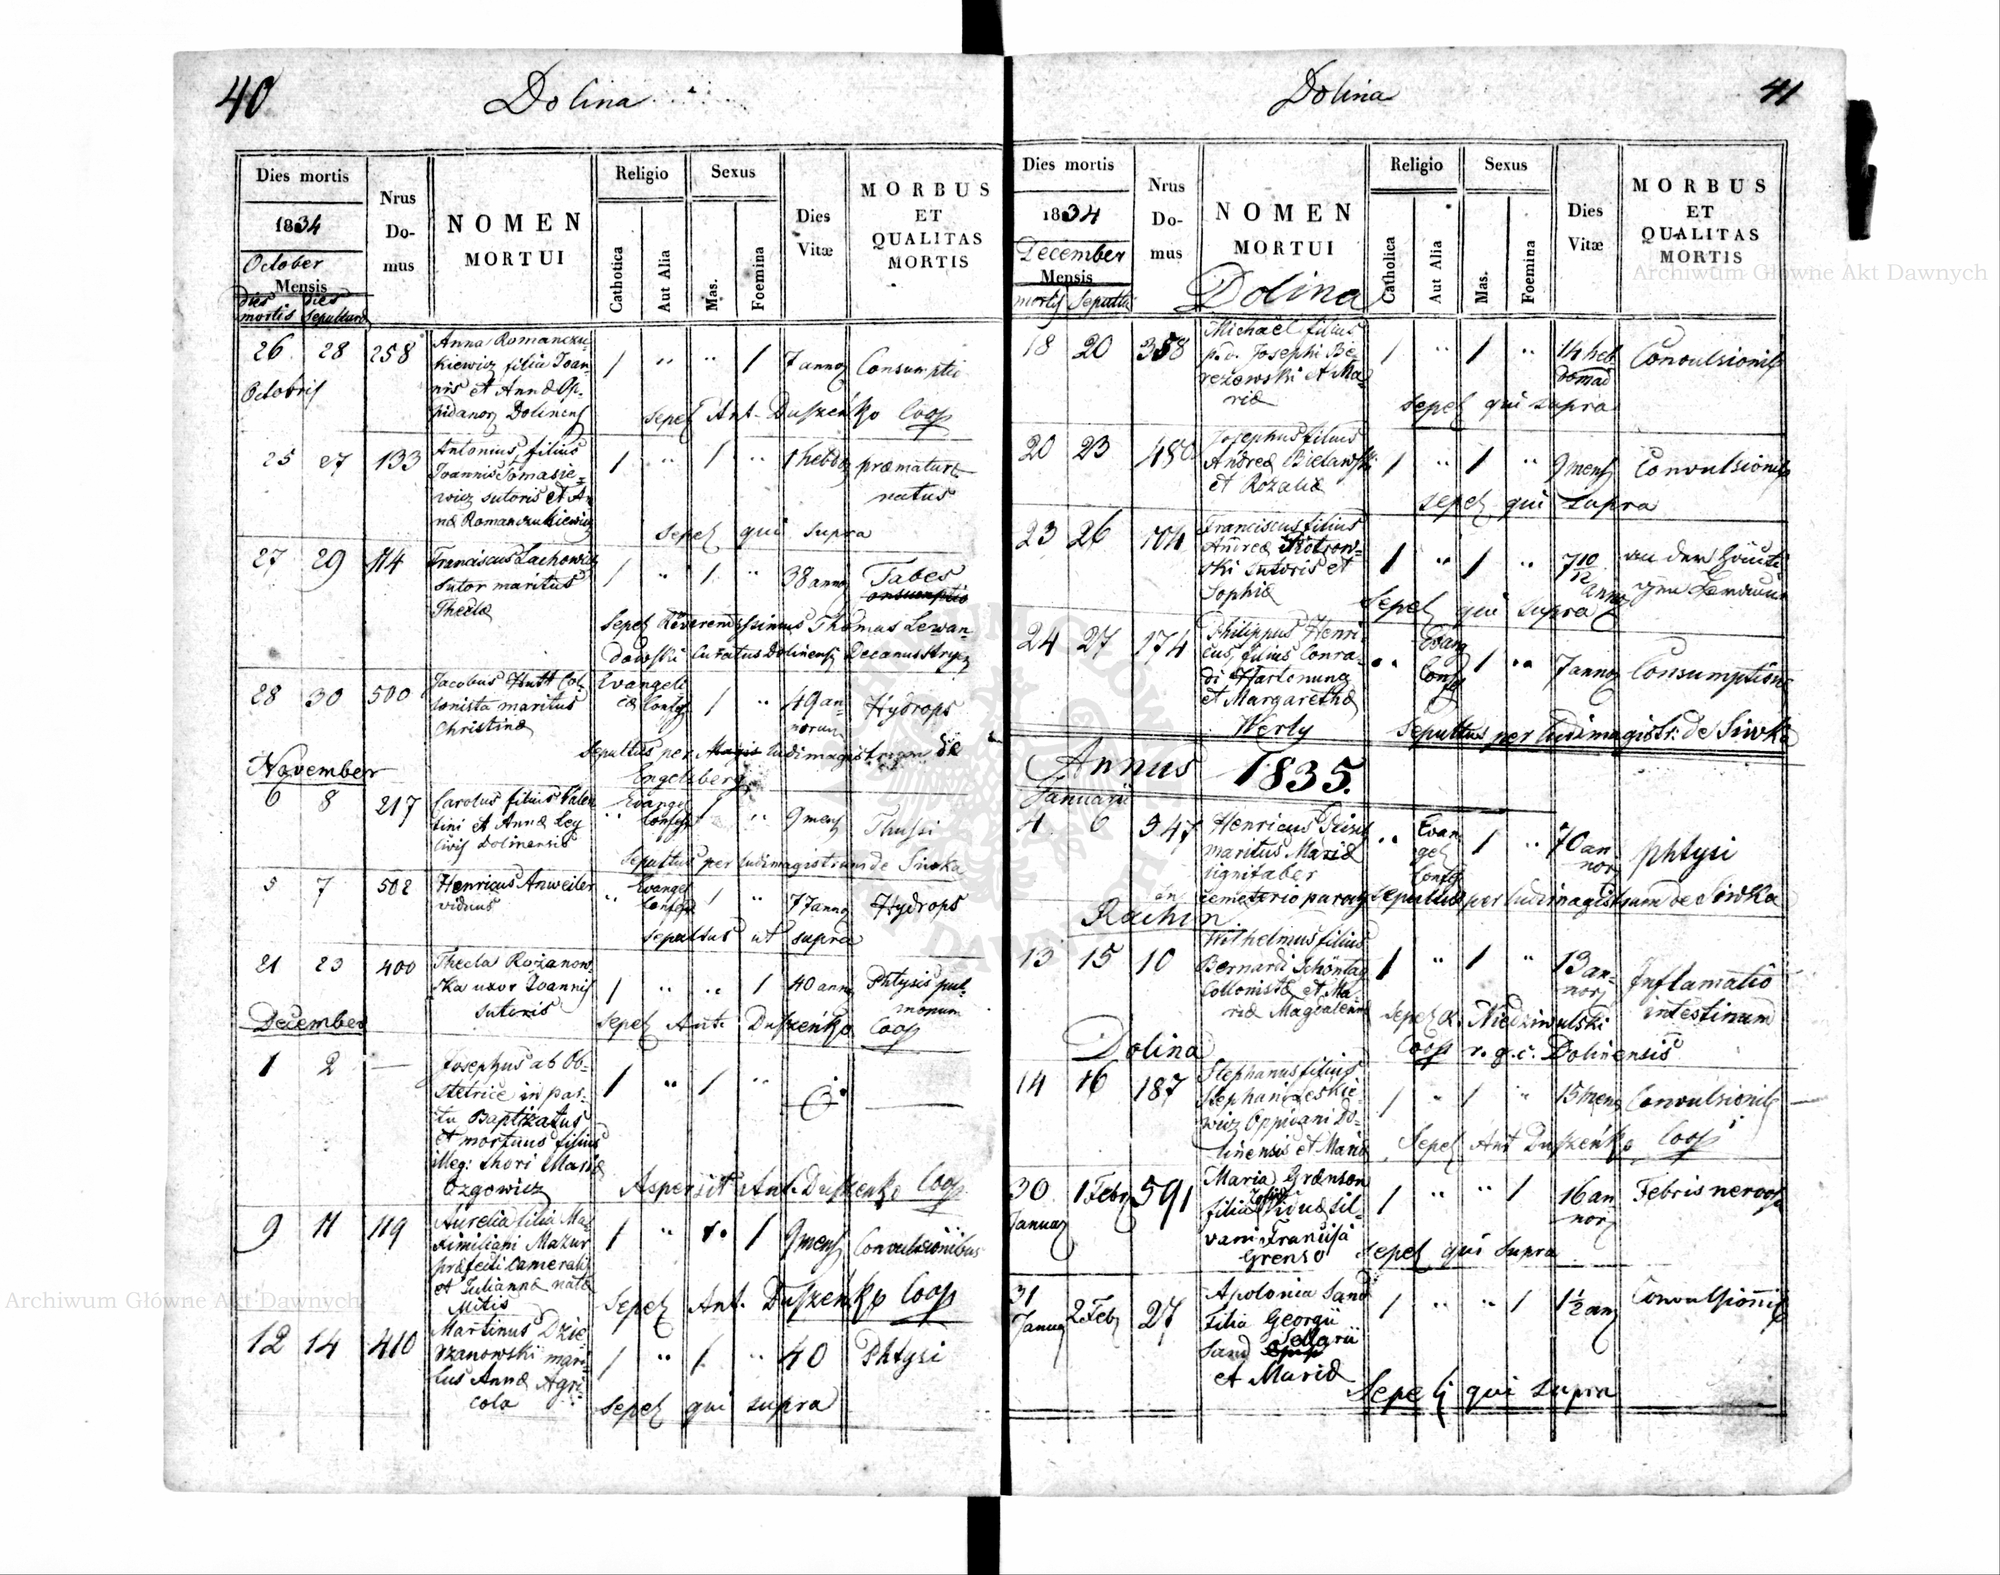 40
Dolina
Dies mortis
1834
October
Mensis
dies mortis
dies
Nrus Domus
NOMEN
MORTUI
Religio
Catholica
Aut Alia
Sexus
Mas.
Foemina
Dies
Vitæ
MORBUS
ET
QUALITAS
MORTIS
26 28 258
Octobris
Anna Romanczu-
kiewicz filia Joan-
nis et Annæ Op-
pidanor Dolinens
1 " " 1 7 annor Consumptio
Sepel Ant. Duszeńko Coop
25 27 133
Antonius, filius
Joannis Tomasie-
wicz sutoris et An-
næ Romanczukiewicz
1 " 1 " 1 hebdo præmature
natus
Sepel qui supra
27 29 114
Franciscus Lachowicz
Sutor maritus
Theclæ
1 " 1 " 38 annor Tabes
Sepel Reverendissimus Thomas Lewan-
dowski Curatus Dolinens Decanus Stryi
28 30 500
Jacobus Hutt Col-
lonista maritus
Christinæ
Evangeli
cæ Confes
1 " 49 an-
norum
Hydrops
Sepultus per ludimagistrum de
Engelsberg
November
6 8 217
Carolus filius Valen
tini et Annæ Ley
Civis Dolinensis
" Evang
Confess
1 " 9 mens Thussi
Sepultus per ludimagistrum de Siwka
5 7 502
Henricus Anweiler
viduus
" Evangel
Confess
1 " 77 annor Hydrops
Sepultus ut supra
21 23 400
Thecla Rożanow-
ska uxor Joannis
Sutoris
1 " " 1 40 annor Phtysis pul-
monum
Sepel Ant. Duszeńko Coop
December
1 2 —
Josephus ab Ob-
stetrice in par-
tu Baptizatus
et mortuus filius
illeg: thori Mariæ
Ozgowicz
1 " 1 "
Aspersit Ant. Duszeńko Coop
9 11 119
Aurelia filia Ma-
ximiliani Mazur
præfecti Cameralis
et Juliannæ natæ
Mitis
1 " 1 9 mens Convulsionibus
Sepel Ant. Duszeńko Coop
12 14 410
Martinus Dzie
rzanowski mari-
tus Annæ Agri-
cola
1 " 1 " 40 Phtysi
Sepel qui supra
Dolina
41
Dies mortis
1834
December
Mensis
mortis Sepulti
Nrus
Do-
mus
NOMEN
MORTUI
Dolina
Religio
Catholica
Aut Alia
Sexus
Mas.
Foemina
Dies
Vitæ
MORBUS
ET
QUALITAS
MORTIS
18 20 358
Michael filius
p.d. Josephi Bie-
rezowski et Ma-
riæ
1 " 1 " 14 heb
domad
Convulsionib
Sepel qui supra
20 23 480
Josephus filius
Andreæ Bielawski
et Rozaliæ
1 " 1 " 9 mens Convulsionib
Sepel qui supra
23 26 104
Franciscus filius
Andreæ Piotrow-
ski Sutoris et
Sophiæ
1 " 1 " 7 10/12
annor
Sepel qui supra
24 27 174
Philippus Henri-
cus, filius Conra-
di Hartonung
et Margarethæ
Werly
" Evang
Confes
1 " 7 annor Consumptione
Sepultus per ludimagistr: de Siwka
Annus 1835.
Januarii
4 6 547
Henricus
maritus Mariæ
lignifaber
" Evan
gel
Confes
1 " 70 an-
nor
phtysi
in cemeterio paroch Sepultus per ludimagistrum de Siwka
Rachin
13 15 10
Wilhelmus filius
Bernardi Schöntag
Collonistæ et Ma-
riæ Magdalenæ
1 " 1 " 13 an-
nor
Inflamatio
intestinum
Sepel R. Niedziwulski
Coop r. g. c. Dolinensis
Dolina
14 16 187
Stephanus filius
Stephani Leskie-
wicz Oppidani Do-
linensis et Mariæ
1 " 1 " 15 mens Convulsionib
Sepel Ant Duszeńko Coop
30 1 Febr 591
Januar
Maria Grænson
filia viduæ sil-
vani Francisca
Grenso
1 " " 1 16 an-
nor
Febris nervosa
Sepel qui supra
31 2 Feb 27
Januar
Apolonia Sand
Filia Georgii
Sand Sellarii
et Mariæ
1 " " 1 1 1/2 an Convulsionib
Sepel qui supra
Archiwum Główne Akt Dawnych
Archiwum Główne Akt Dawnych